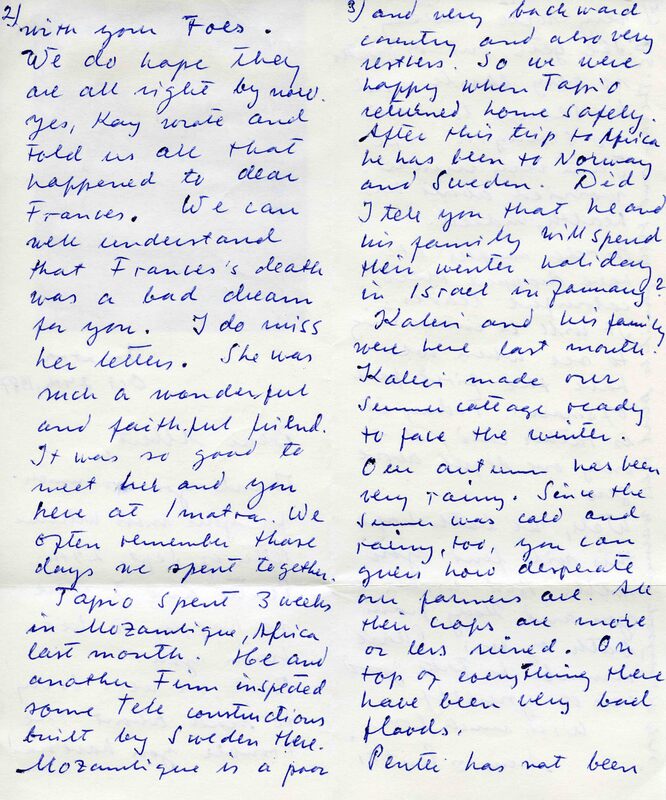 2) with your Foes.
We do hope they
are all right by now.
Yes, Kay wrote and
told us all that
happened to dear
Frances. We can
well understand
that Frances's death
was a bad dream
for you. I do miss
her letters. She was
such a wonderful
and faithful friend.
It was so good to
meet her and you
here at Imatra. We
often remember those
days we spent together.
Tapio spent 3 weeks
in Mozambique, Africa
last month. He and
another Finn inspected
some tele constructions
built by Sweden there.
Mozambique is a poor
3) and very backward
country and also very
restless. So we were
happy when Tapio
returned home safely.
After this trip to Africa
he has been to Norway
and Sweden. Did
I tell you that he and
his family will spend
their winter holiday
in Israel in January?
Kalevi and his family
were here last month.
Kalevi made our
summer cottage ready
to face the winter.
Our autumn has been
very rainy. Since the
summer was cold and
rainy, too, you can
guess how desperate
our farmers are. All
their crops are more
or less ruined. On
top of everything there
have been very bad
floods.
Pentti has not been